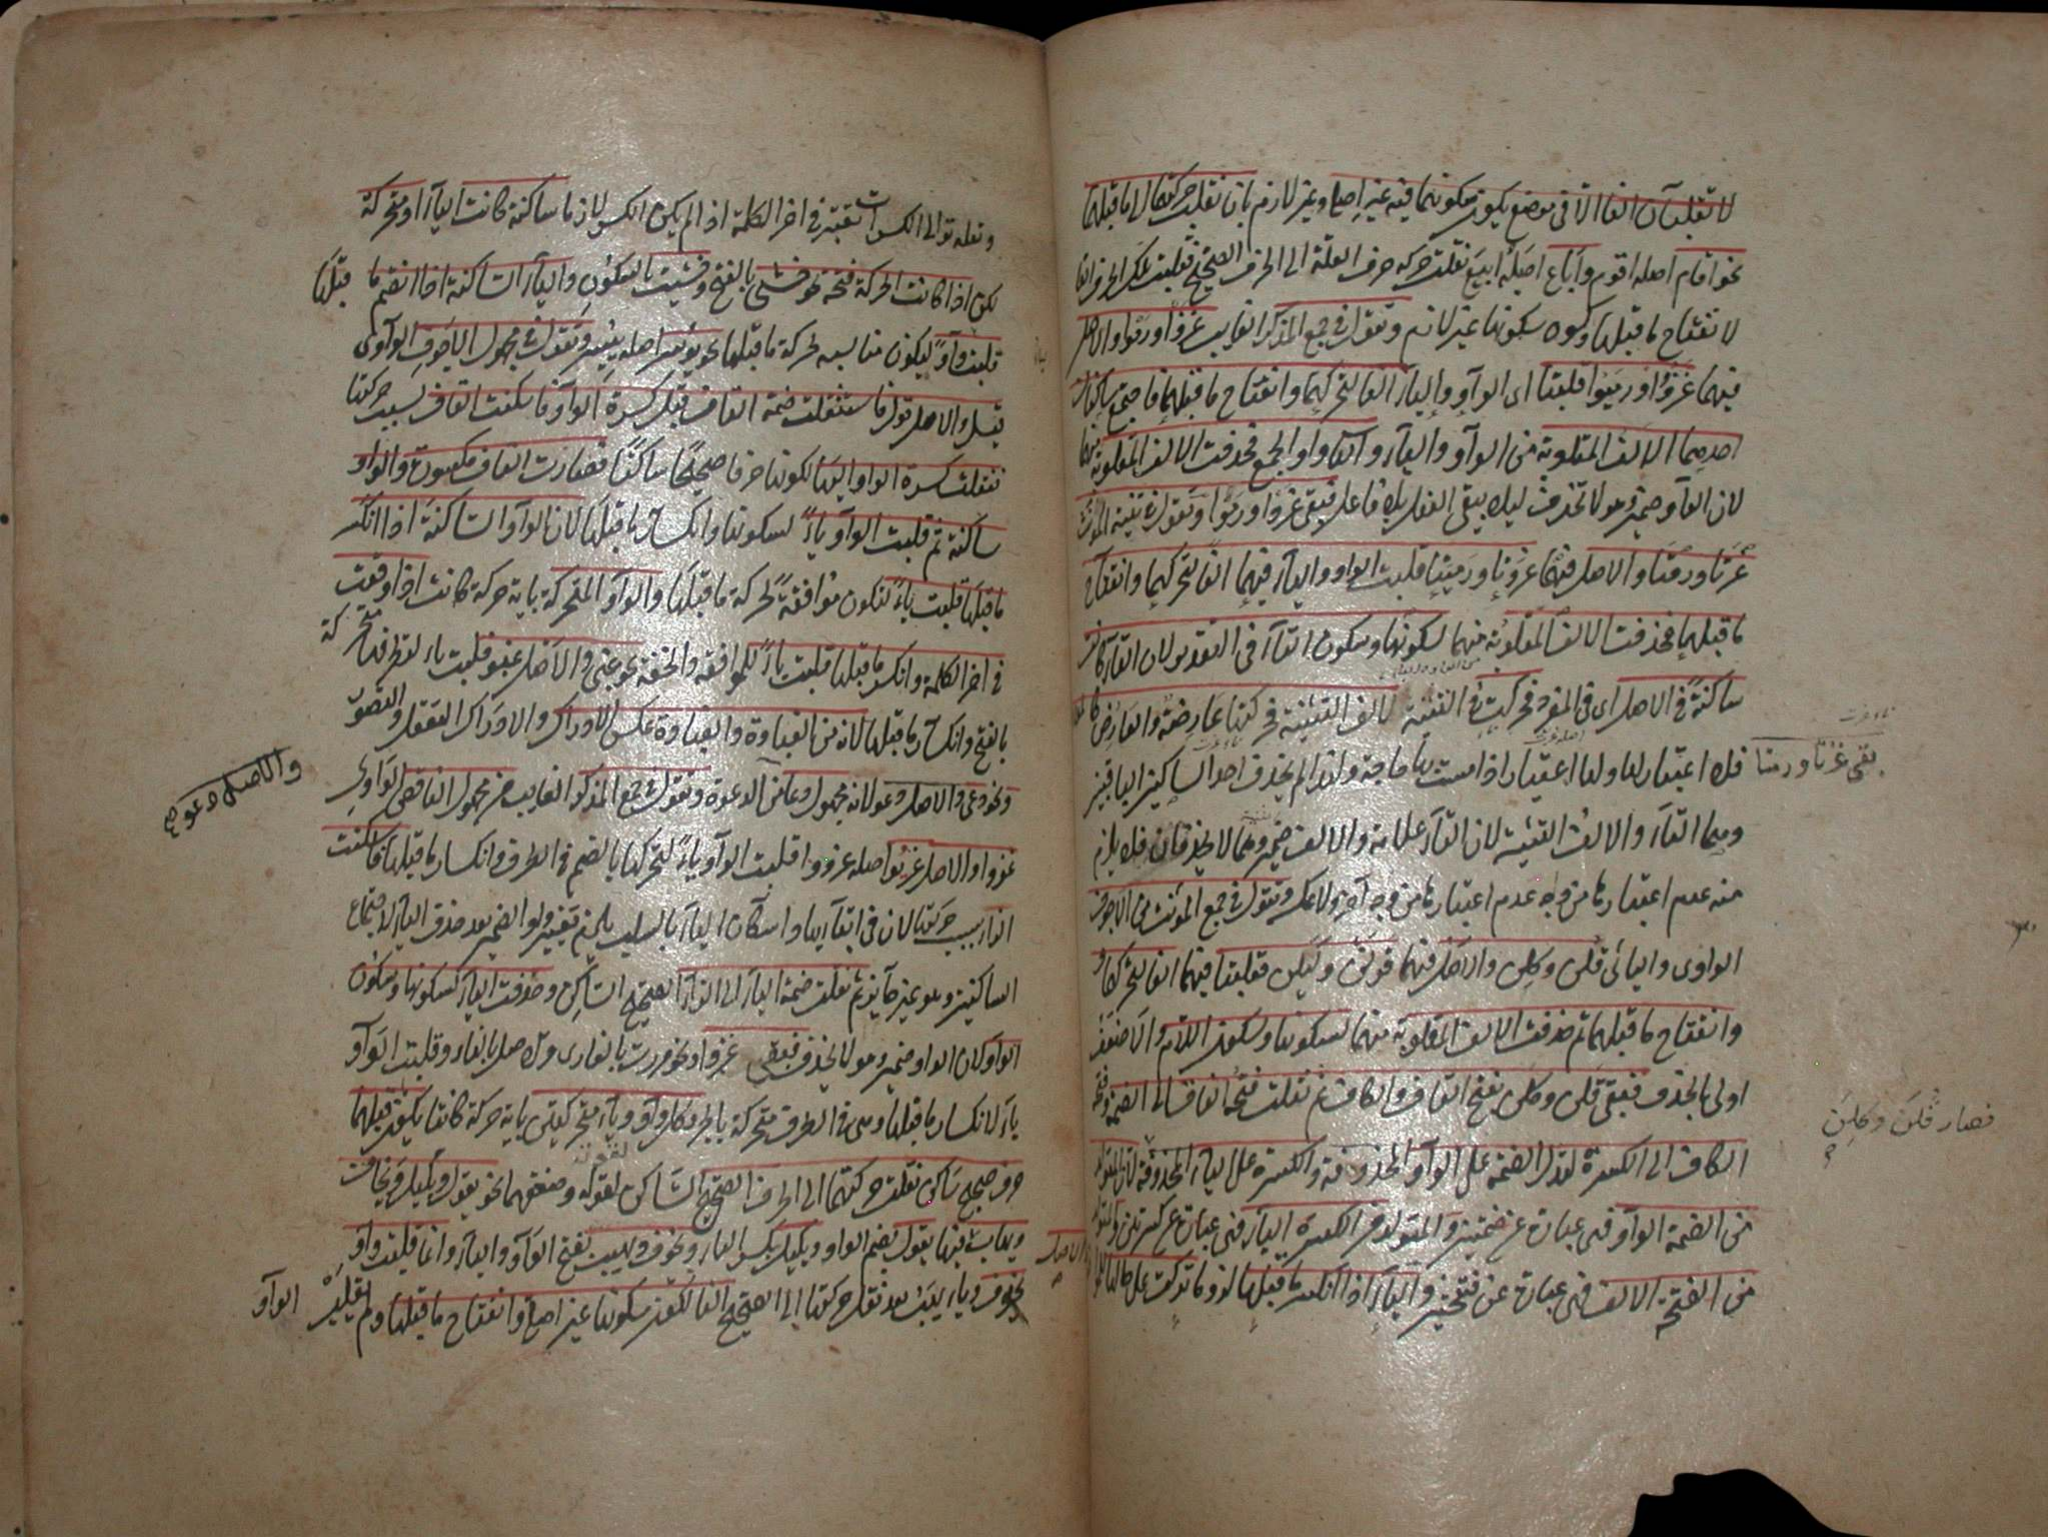 لا تقلبان الفا الا فى موضع يكون سكونهما فيه غير اصلى وغير لازم بان نقلت حركتهما الى ما قبلهما
نحو اقام اصله اقوم واباع اصله ابيع نقلت حركة حرف العلة الى الحرف الصحيح فقلبت الفا
لانفتاح ما قبلها وكون سكونها غير لازم وتقول فى جمع المذكر الغايب غزوا ورموا والاصل
فيهما غزووا ورميوا قلبتا اى الواو والياء الفا لتحركهما وانفتاح ما قبلهما فاجتمع ساكنان
احدهما الالف المقلوبة من الواو والياء والثانى واو الجمع فحذفت الالف المقلوبة منهما
لان الواو ضمير وهو لا تحذف ليلا يبقى الفعل بلا فاعل فبقى غزوا ورموا وتقول فى تثنية المؤنث
غزتا ورمتا والاصل فيهما غزوتا ورميتا قلبت الواو والياء فيهما الفا لتحركهما وانفتاح
ما قبلهما فحذفت الالف المقلوبة منهما لسكونها وسكون التاء فى التقدير لان التاء كانت
ساكنة فى الاصل اى فى المفرد فحركت فى التثنية لالف التثنية فحركتها عارضة والعارض
بقى غزتا ورمتا
فلا اعتبار لها ولها اعتبار اذا مست بها حاجة ولهذا لم يحذف احد الساكنين الباقيين
وهما التاء والالف التثنية لان التاء علامة والالف ضمير وهما لا يحذفان فلا يلزم
منه عدم اعتبارها من وجه عدم اعتبارها من وجه آخر ولا عكس وتقول فى جمع المؤنث من الاجوف
الواوى واليائى قلن وكلن والاصل فيهما قولن وكيلن فقلبتا فيهما الفا لتحركهما
وانفتاح ما قبلهما ثم حذفت الالف المقلوبة منهما لسكونها وسكون اللام والاضعف
اولى بالحذف فبقى قلن وكلن بفتح القاف والكاف ثم نقلت فتحة القاف الى الضمة وفتحة
فصار قلن وكلن
الكاف الى الكسرة لتدل الضمة على الواو المحذوفة والكسرة على الياء المحذوفة لان المتولد
من الضمة الواو فهى عبارة عن ضمتين والمتولد من الكسرة الياء فهى عبارة عن كسرتين والمتولد
من الفتحة الالف فهى عبارة عن فتحتين والياء اذا انكسر ما قبلها نحو تركت على حالها
وتعله توالى الكسرات تقبة فى اخر الكلمة اذ الم يكن الكسر لازما ساكنة كانت الياء او متحركة
لكن اذا كانت الحركة فتحة نحو خشى بالفتح وخشيت بالسكون والياء الساكنة اذا انضم ما قبلها
قلبت واوا ليكون مناسبه لحركة ما قبلها نحو يوسر اصله ييسر وتقول فى مجهول الاجوف الواوى
قيل والاصل قول فاستثقلت ضمة القاف قبل كسرة الواو فاسكنت القاف بسبب حركتها
نقلت كسرة الواو اليها لكونها حرفا صحيحا ساكنا فصارت القاف مكسورة والواو
ساكنة ثم قلبت الواو ياء لسكونها وانكسار ما قبلها لان الواو الساكنة اذا انكسر
ما قبلها قلبت ياء لتكون موافقة لحركة ما قبلها والواو المتحركة باية حركة كانت اذا وقعت
فى اخر الكلمة وانكسر ما قبلها قلبت ياء للموافقة والخفة نحو غبى والاصل غبو قلبت ياء لتطرفها متحركة
بالفتح وانكسار ما قبلها لانه من الغباوة والغباوة عكس الادراك والادراك التعقل والتصور
ونحو دعى والاصل دعو لانه مجهول دعا من الدعوة وتقول فى جمع المذكر الغايب من مجهول الناقص الواوى
والاصل دعو
غزوا والاصل غزيوا اصله غزووا قلبت الواو ياء لتحركها بالضم فى الطرف وانكسار ما قبلها فاسكنت
الزاء بسبب حركتها لان فى ابقائها واسكان الياء بالسلب يلزم تغيير واو الضمير بعد حذف الياء لاجتماع
الساكنين وهو غير جايز ثم نقلت ضمة الياء الى الزاء الصحيح الساكن وحذفت الياء لسكونها وسكون
الواو لان الواو ضمير وهو لا يحذف فبقى غزوا ونحو مررت بالغازى والاصل بالغازو قلبت الواو
ياء لانكسار ما قبلها وهى فى الطرف متحركة بالجر وكل واو وياء متحركتين باية حركة كانتا يكون قبلهما
حرف صحيح ساكن نقلت حركتهما الى الحرف الصحيح الساكن لقوته وضعفهما نحو يقول ويكيل ويخاف
ويهاب فيها يقول بضم الواو ويكيل بكسر الياء ويخوف ويهيب بفتح الواو والياء وانما قلبت واو
والاصل
يخوف وياء يهيب بعد نقل حركتها الى الصحيح الفا لكون سكونها غير اصلى وانفتاح ما قبلها ولم تقلب الواو